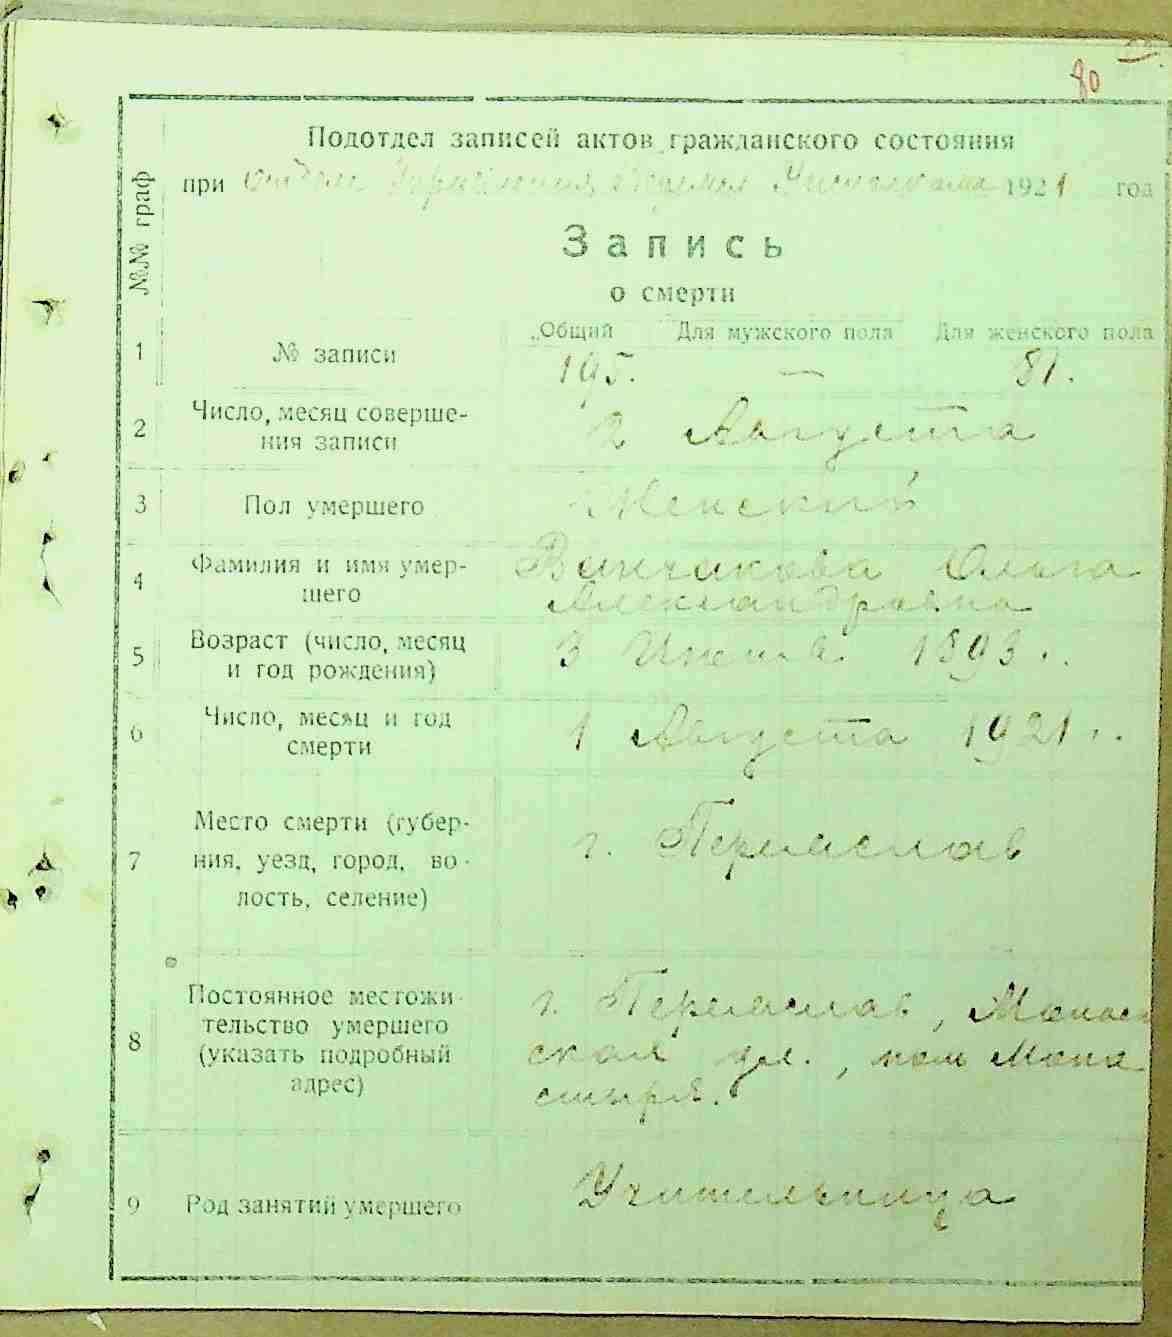 80
Подотдел записей актов гражданского состояния
при отделе Управления Исполкома 1921 год
№№ граф
Запись
о смерти
Общий Для мужского пола Для женского пола
1 № записи 195. — 81.
2 Число, месяц соверше-
ния записи 2 Августа
3 Пол умершего Женский
4 Фамилия и имя умер-
шего Ольга
Александровна
5 Возраст (число, месяц
и год рождения) 3 1893.
6 Число, месяц и год
смерти 1 Августа 1921 г.
7 Место смерти (губер-
ния, уезд, город, во-
лость, селение) г. Переяслав
8 Постоянное местожи-
тельство умершего
(указать подробный
адрес) г. Переяслав, Монаст
ская ул., пом Мона
стыря.
9 Род занятий умершего Учительница